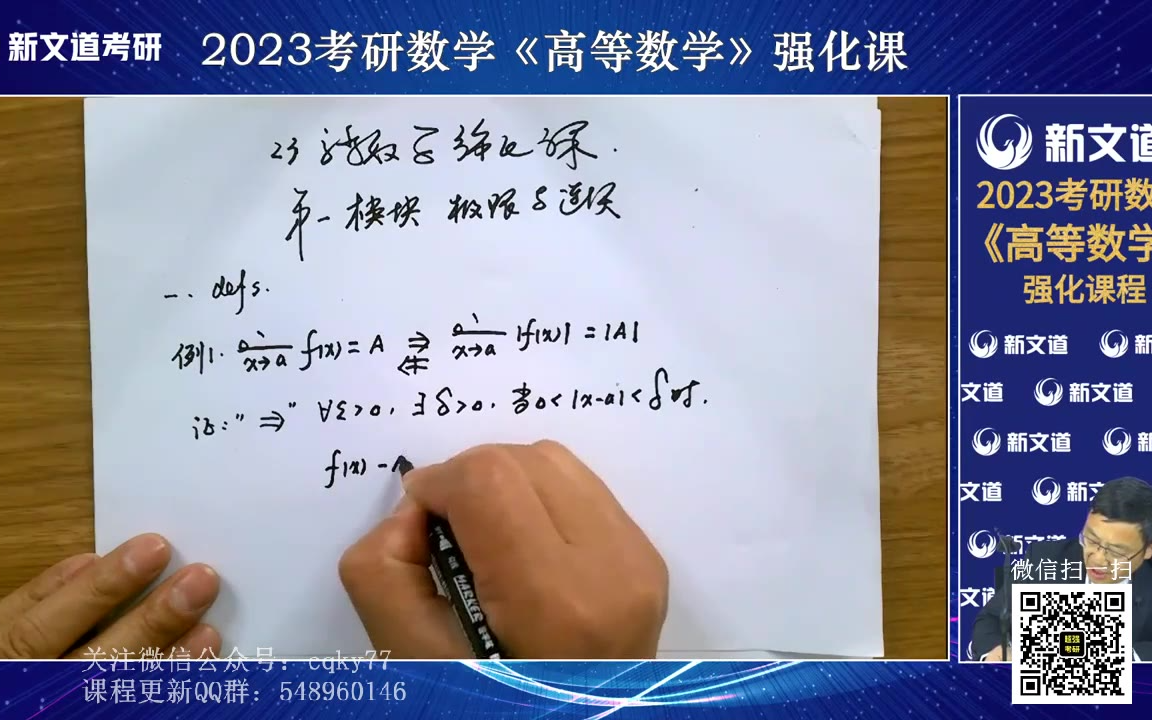 新文道考研
2023考研数学《高等数学》强化课
23考研数学强化课.
第一模块 极限与连续
一. defs.
例1. lim x→a f(x)=A ⇒ lim x→a |f(x)|=|A|
⇍
证:"⇒" ∀ε>0, ∃δ>0, 当0<|x-a|<δ时,
f(x)-
新文道
2023考研数
《高等数学
强化课程
新文道 新
文道 新文道
新文道 新
文道 新文
新文道
文道
微信扫一扫
超强
考研
MARKER
关注微信公众号：cqky77
课程更新QQ群：548960146